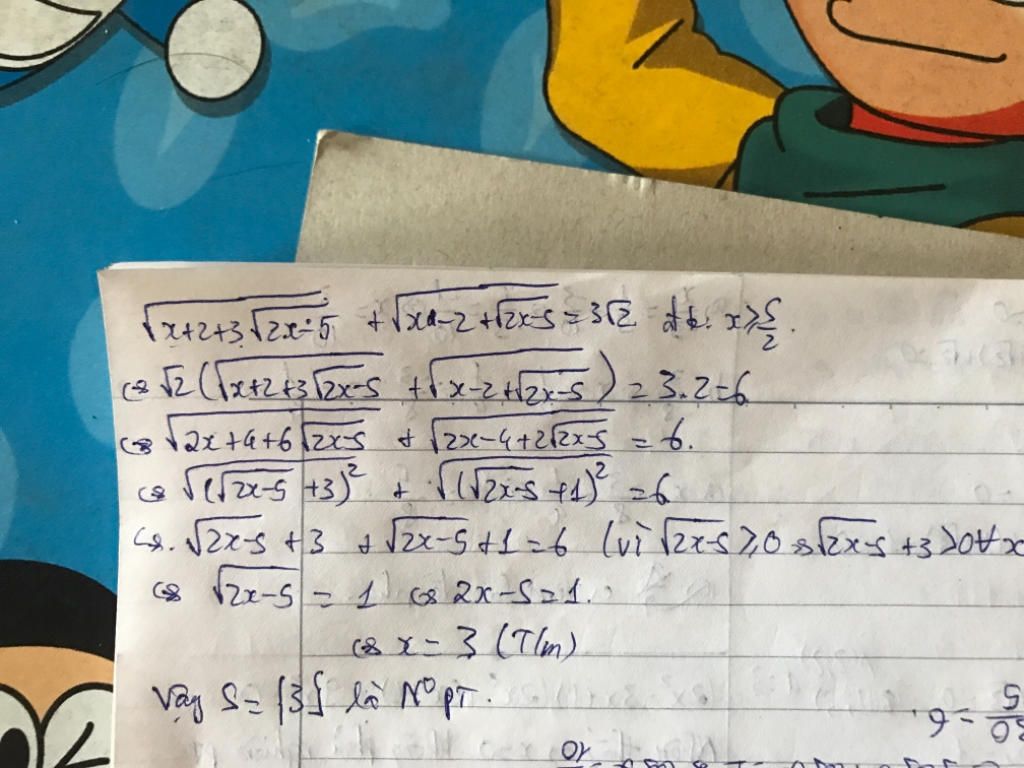 √(x+2+3√(2x-5)) + √(x-2+√(2x-5)) = 3√2 đk: x ≥ 5/2.
⇔ √2 (√(x+2+3√(2x-5)) + √(x-2+√(2x-5))) = 3.2=6
⇔ √(2x+4+6√(2x-5)) + √(2x-4+2√(2x-5)) = 6.
⇔ √((√(2x-5) +3)²) + √((√(2x-5) +1)²) = 6
⇔. √(2x-5) +3 + √(2x-5) +1 = 6 (vì √(2x-5) ≥ 0 ⇔ √(2x-5) +3 >0 ∀x
⇔ √(2x-5) = 1 ⇔ 2x-5=1.
⇔ x = 3 (T/m)
Vậy S = {3} là N⁰ pT.